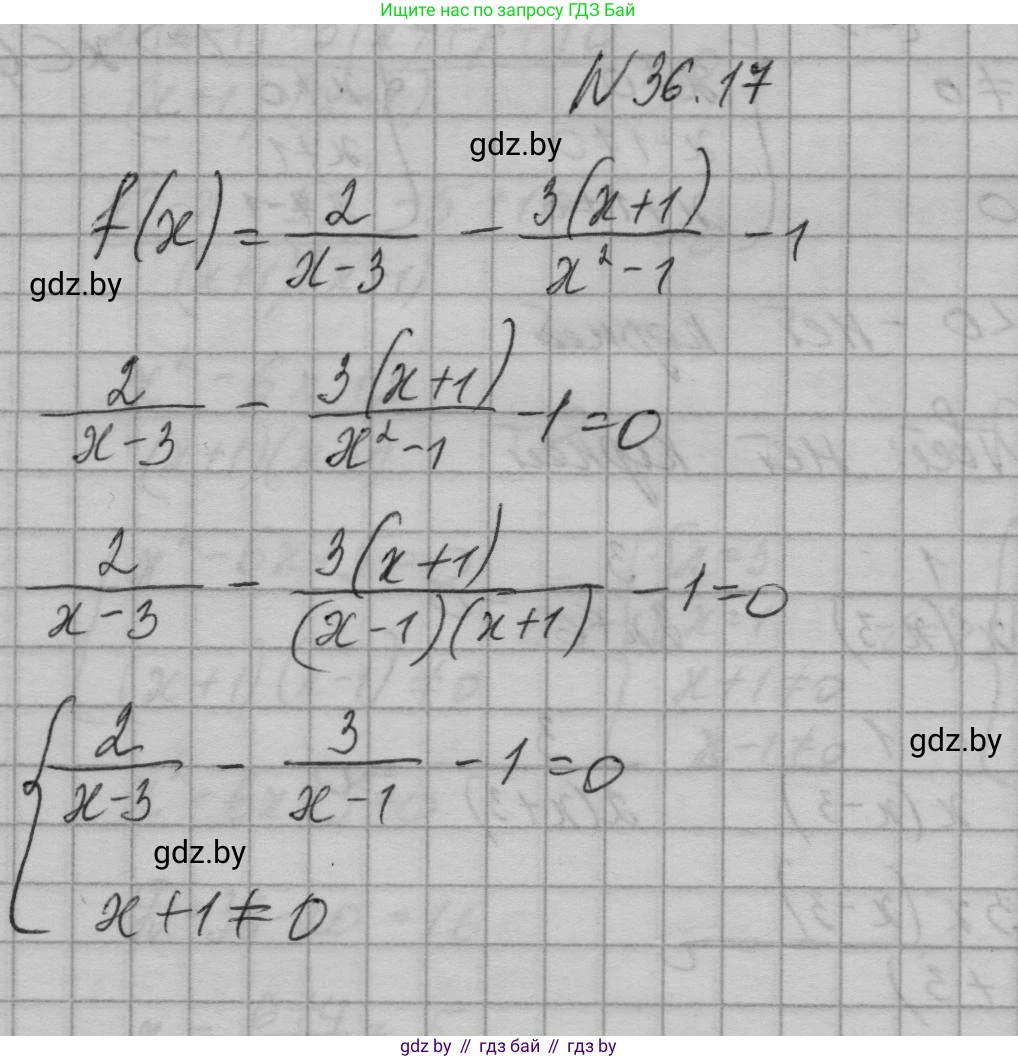 Ищите нас по запросу ГДЗ Бай
N 36.17
gdz.by
f(x) = 2/(x-3) - 3(x+1)/(x²-1) - 1
gdz.by
2/(x-3) - 3(x+1)/(x²-1) - 1 = 0
2/(x-3) - 3(x+1)/((x-1)(x+1)) - 1 = 0
{ 2/(x-3) - 3/(x-1) - 1 = 0
gdz.by
gdz.by
x + 1 ≠ 0
gdz by // гдз бай // gdz by